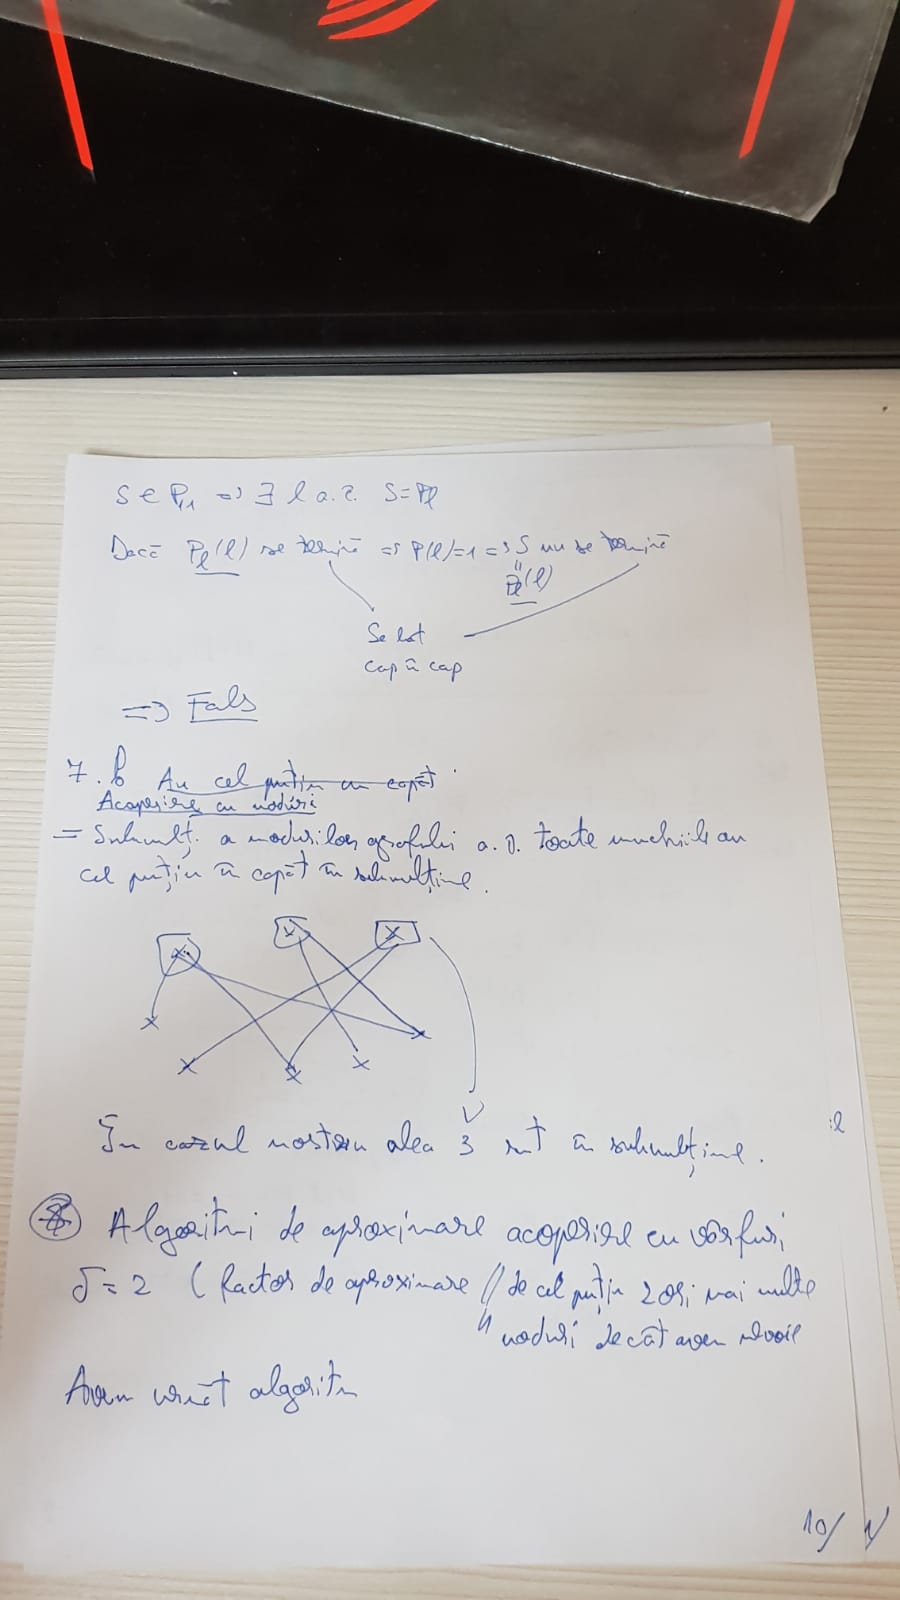 S ∈ P,1 => ∃ l a.î. S=Pl
Dacă Pl(l) se termină => P(l)=1 => S nu se termină
"
Pl(l)
Se bat
cap în cap
=> Fals
7. Au cel puțin un capăt
Acoperire cu noduri
= Submulț. a nodurilor grafului a.î. toate muchiile au
cel puțin un capăt în submulțime.
În cazul nostru alea 3 sunt în submulțime.
Algoritmi de aproximare acoperire cu vârfuri
δ = 2 (factor de aproximare // de cel puțin 2 ori mai multe
noduri decât avem nevoie
Avem următ algoritm
10/